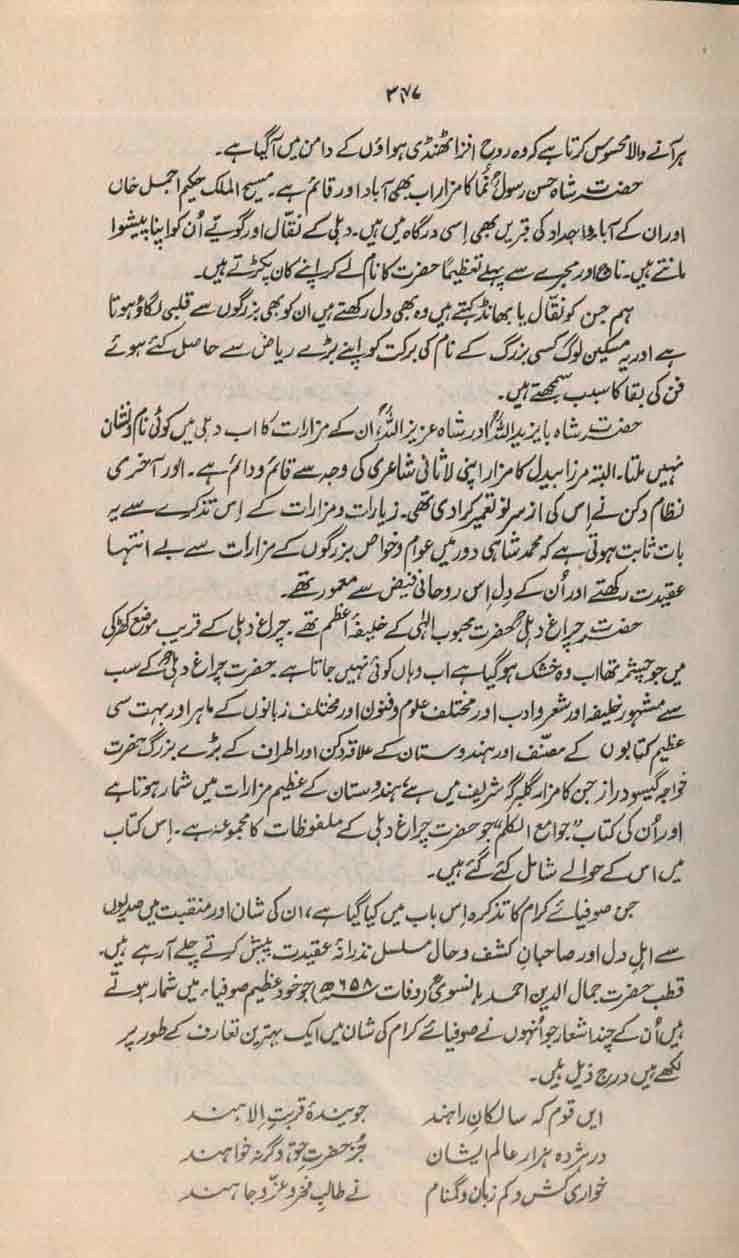 ۳۷۷
ہر آنے والا محسوس کرتا ہے کہ وہ روح افزا ٹھنڈی ہواؤں کے دامن میں آ گیا ہے۔
حضرت شاہ حسن رسول نما کا مزار اب بھی آباد اور قائم ہے۔ مسیح الملک حکیم اجمل خاں
اور ان کے آباء و اجداد کی قبریں بھی اسی درگاہ میں ہیں۔ دہلی کے نقّال اور گویّے اُن کو اپنا پیشوا
مانتے ہیں۔ ناچ اور مجرے سے پہلے تعظیماً حضرت کا نام لے کر اپنے کان پکڑتے ہیں۔
ہم جن کو نقّال یا بھانڈ کہتے ہیں وہ بھی دل رکھتے ہیں ان کو بھی بزرگوں سے قلبی لگاؤ ہوتا
ہے اور یہ مسکین لوگ کسی بزرگ کے نام کی برکت کو اپنے بڑے ریاض سے حاصل کئے ہوئے
فن کی بقا کا سبب سمجھتے ہیں۔
حضرت شاہ بایزید اللہؒ اور شاہ عزیز اللہؒ ان کے مزارات کا اب دہلی میں کوئی نام و نشان
نہیں ملتا۔ البتہ مرزا بیدل کا مزار اپنی لاثانی شاعری کی وجہ سے قائم و دائم ہے۔ اور آخری
نظام دکن نے اس کی از سرِ نو تعمیر کرا دی تھی۔ زیارات و مزارات کے اِس تذکرے سے یہ
بات ثابت ہوتی ہے کہ محمد شاہی دور میں عوام و خواص بزرگوں کے مزارات سے بے انتہا
عقیدت رکھتے اور اُن کے دل اِس روحانی فیض سے معمور تھے۔
حضرت چراغ دہلیؒ حضرت محبوب الٰہی کے خلیفۂ اعظم تھے۔ چراغ دہلی کے قریب موضع کھڑکی
میں جو چشمہ تھا اب وہ خشک ہو گیا ہے اب وہاں کوئی نہیں جاتا ہے۔ حضرت چراغ دہلیؒ کے سب
سے مشہور خلیفہ اور شعر و ادب اور مختلف علوم و فنون اور مختلف زبانوں کے ماہر اور بہت سی
عظیم کتابوں کے مصنّف اور ہندوستان کے علاقہ دکن اور اطراف کے بڑے بزرگ حضرت
خواجہ گیسو دراز جن کا مزار گلبرگہ شریف میں ہے، ہندوستان کے عظیم مزارات میں شمار ہوتا ہے
اور اُن کی کتاب "جوامع الکلم" جو حضرت چراغ دہلی کے ملفوظات کا مجموعہ ہے۔ اِس کتاب
میں اس کے حوالے شامل کئے گئے ہیں۔
جن صوفیائے کرام کا تذکرہ اِس باب میں کیا گیا ہے، ان کی شان اور منقبت میں صدیوں
سے اہلِ دل اور صاحبانِ کشف و حال مسلسل نذرانۂ عقیدت پیش کرتے چلے آ رہے ہیں۔
قطب حضرت جمال الدین احمد ہانسویؒ (وفات ۶۵۸ھ) جو خود عظیم صوفیاء میں شمار ہوتے
ہیں اُن کے چند اشعار جو اُنہوں نے صوفیائے کرام کی شان میں ایک بہترین تعارف کے طور پر
لکھے ہیں درج ذیل ہیں۔
ایں قوم کہ سالکانِ راہند جویندۂ قربتِ الاہند
در ہژدہ ہزار عالم ایشان جُز حضرتِ حق دگر نہ خواہند
خواری کش و کم زبان و گمنام نے طالبِ فخر و عزّ و جاہند